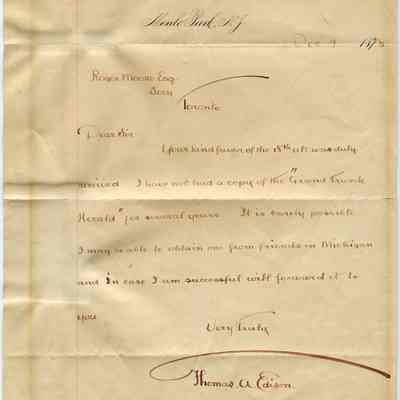 Menlo Park, N.J.
Dec 9 187
Roger Moore Esq.
Toronto
Dear Sir
Your kind favor of the 18th ult was duly
received I have not had a copy of the "Grand Trunk
Herald" for several years It is barely possible
I may be able to obtain one from friends in Michigan
and in case I am successful will forward it to
you
Very Truly
Thomas A Edison